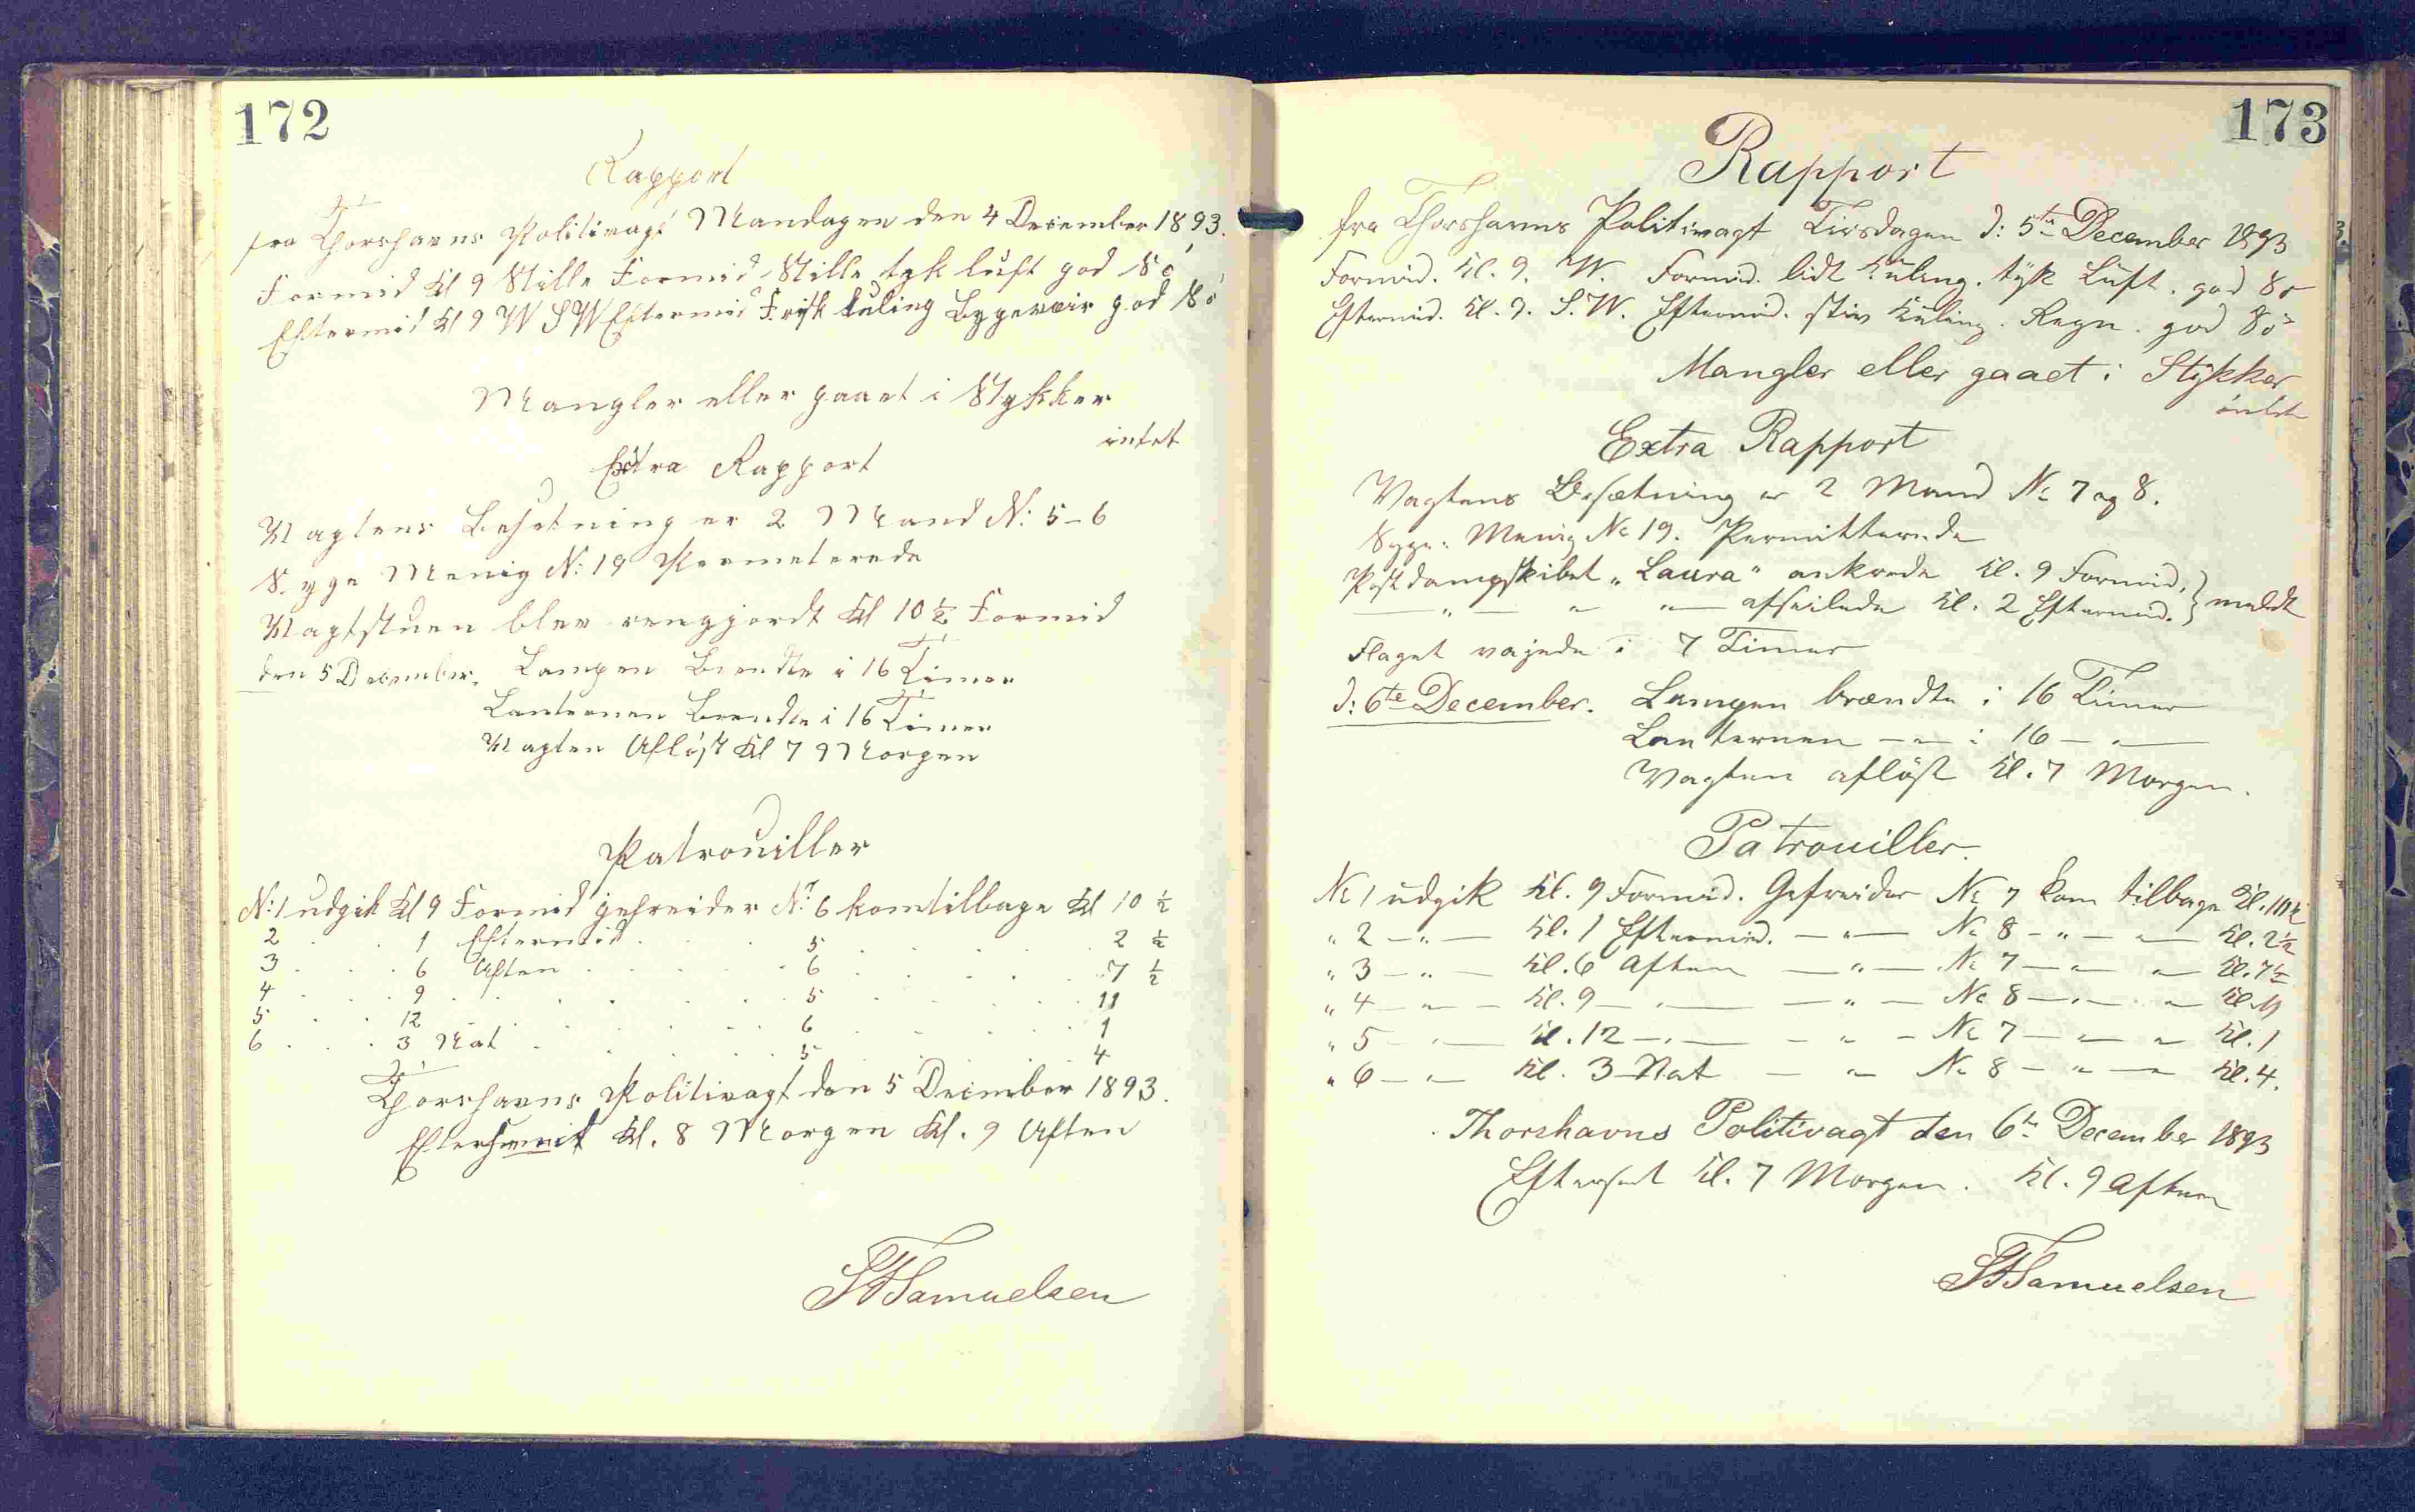 172
Rapport
fra Thorshavns Politivagt Mandagen den 4 December 1893.
Formid Kl 9 Stille Formid Stille tyk luft god Sö
Eftermid Kl 9 W S W Eftermid Frisk kuling Bygevair god Sö
Mangler eller gaaet i Stykker
intet
Extra Rapport
Vagtens Besetning er 2 Mand N: 5-6
Syge Menig N: 19 Permeterede
Vagtstuen blev rengjordt Kl 10 ½ Formid
den 5 December. Lampen Brendte i 16 Timer
Lanternen Brendte i 16 Timer
Vagten Aflöst Kl 7 Morgen
Patrouiller
N: 1 udgik Kl 9 Formid gefreider N: 6 kom tilbage Kl 10 ½
2 . . 1 Eftermid . . 5 . . . 2 ½
3 . . . 6 Aften . . . . 6 . . . . 7 ½
4 . . . 9 . . . . . 5 . . . . 11
5 . . 12 . . . . . 6 . . . . 1
6 . . . 3 Nat . . . . 5 . . . . 4
Thorshavns Politivagt den 5 December 1893.
Kl. 8 Morgen Kl. 9 Aften
Samuelsen
173
Rapport
fra Thorshavns Politivagt Tirsdagen d: 5te December 1893
Formid. Kl. 9. W. Formid. lidt Kuling. tyk Luft. god Sö
Eftermid. Kl. 9. S.W. Eftermid. stiv Kuling. Regn. god Sö
Mangler eller gaaet i Stykker
intet
Extra Rapport
Vagtens Besætning er 2 Mand No 7 og 8.
Syge: Menig No 19. Permitterede
Postdampskibet "Laura" ankrede Kl. 9 Formid. } meldt
— " — " — " — afseilede Kl. 2 Eftermid. }
Flaget vajede i 7 Timer
d: 6te December. Lampen brændte i 16 Timer
Lanternen — " — i 16 — " —
Vagten aflöst Kl. 7 Morgen.
Patrouiller.
No 1 udgik Kl. 9 Formid. Gefreider No 7 kom tilbage Kl. 10½
" 2 — " — Kl. 1 Eftermid. — " — No 8 — " — " — Kl. 2½
" 3 — " — Kl. 6 Aften — " — No 7 — " — " — Kl. 7½
" 4 — " — Kl. 9 — " — — " — No 8 — " — " — Kl. 11
" 5 — " — Kl. 12 — " — — " — No 7 — " — " — Kl. 1
" 6 — " — Kl. 3 Nat — " — No 8 — " — " — Kl. 4.
Thorshavns Politivagt den 6te December 1893
Efterset Kl. 7 Morgen. Kl. 9 Aften
Samuelsen